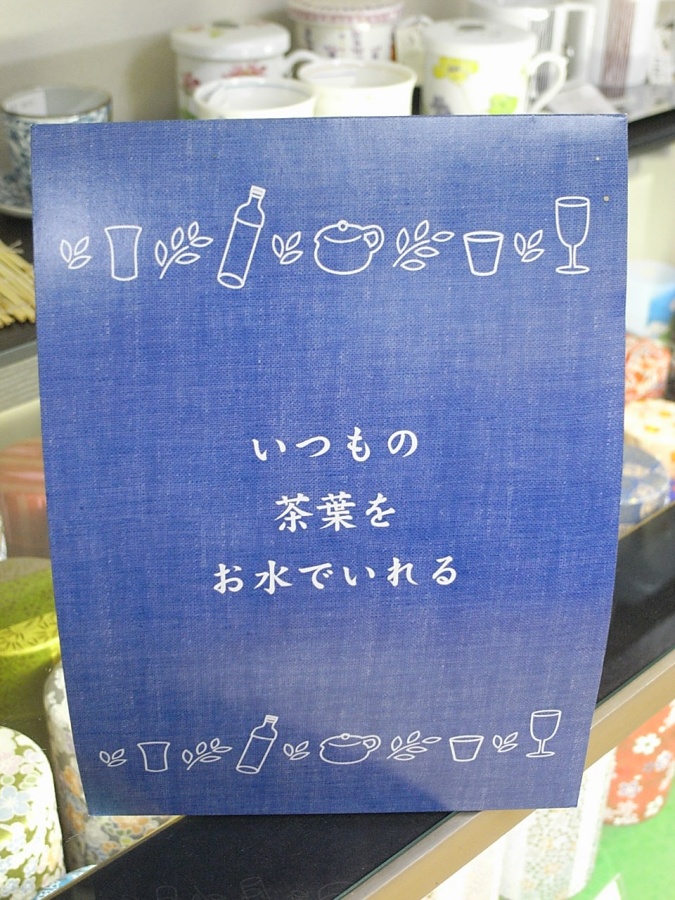 いつもの
茶葉を
お水でいれる